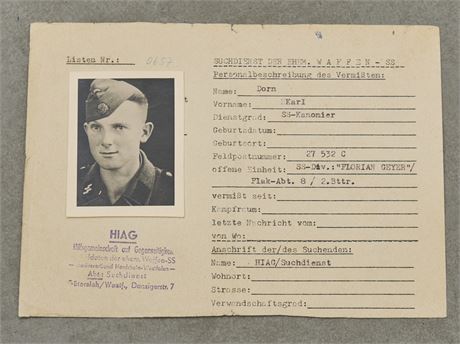 Listen Nr.: 0657
HIAG
Hilfsgemeinschaft auf Gegenseitigkeit
Soldaten der ehem. Waffen-SS
Landesverband Nordrhein-Westfalen
Abt: Suchdienst
Gütersloh/Westf., Danzigerstr. 7
SUCHDIENST DER EHEM. WAFFEN-SS
Personalbeschreibung des Vermißten:
Name: Dorn
Vorname: Karl
Dienstgrad: SS-Kanonier
Geburtsdatum:
Geburtsort:
Feldpostnummer: 27 532 C
offene Einheit: SS-Div.: "FLORIAN GEYER"/
Flak-Abt. 8 / 2.Bttr.
vermißt seit:
Kampfraum:
letzte Nachricht vom:
von Wo:
Anschrift der/des Suchenden:
Name: HIAG/Suchdienst
Wohnort:
Strasse:
Verwandschaftsgrad: